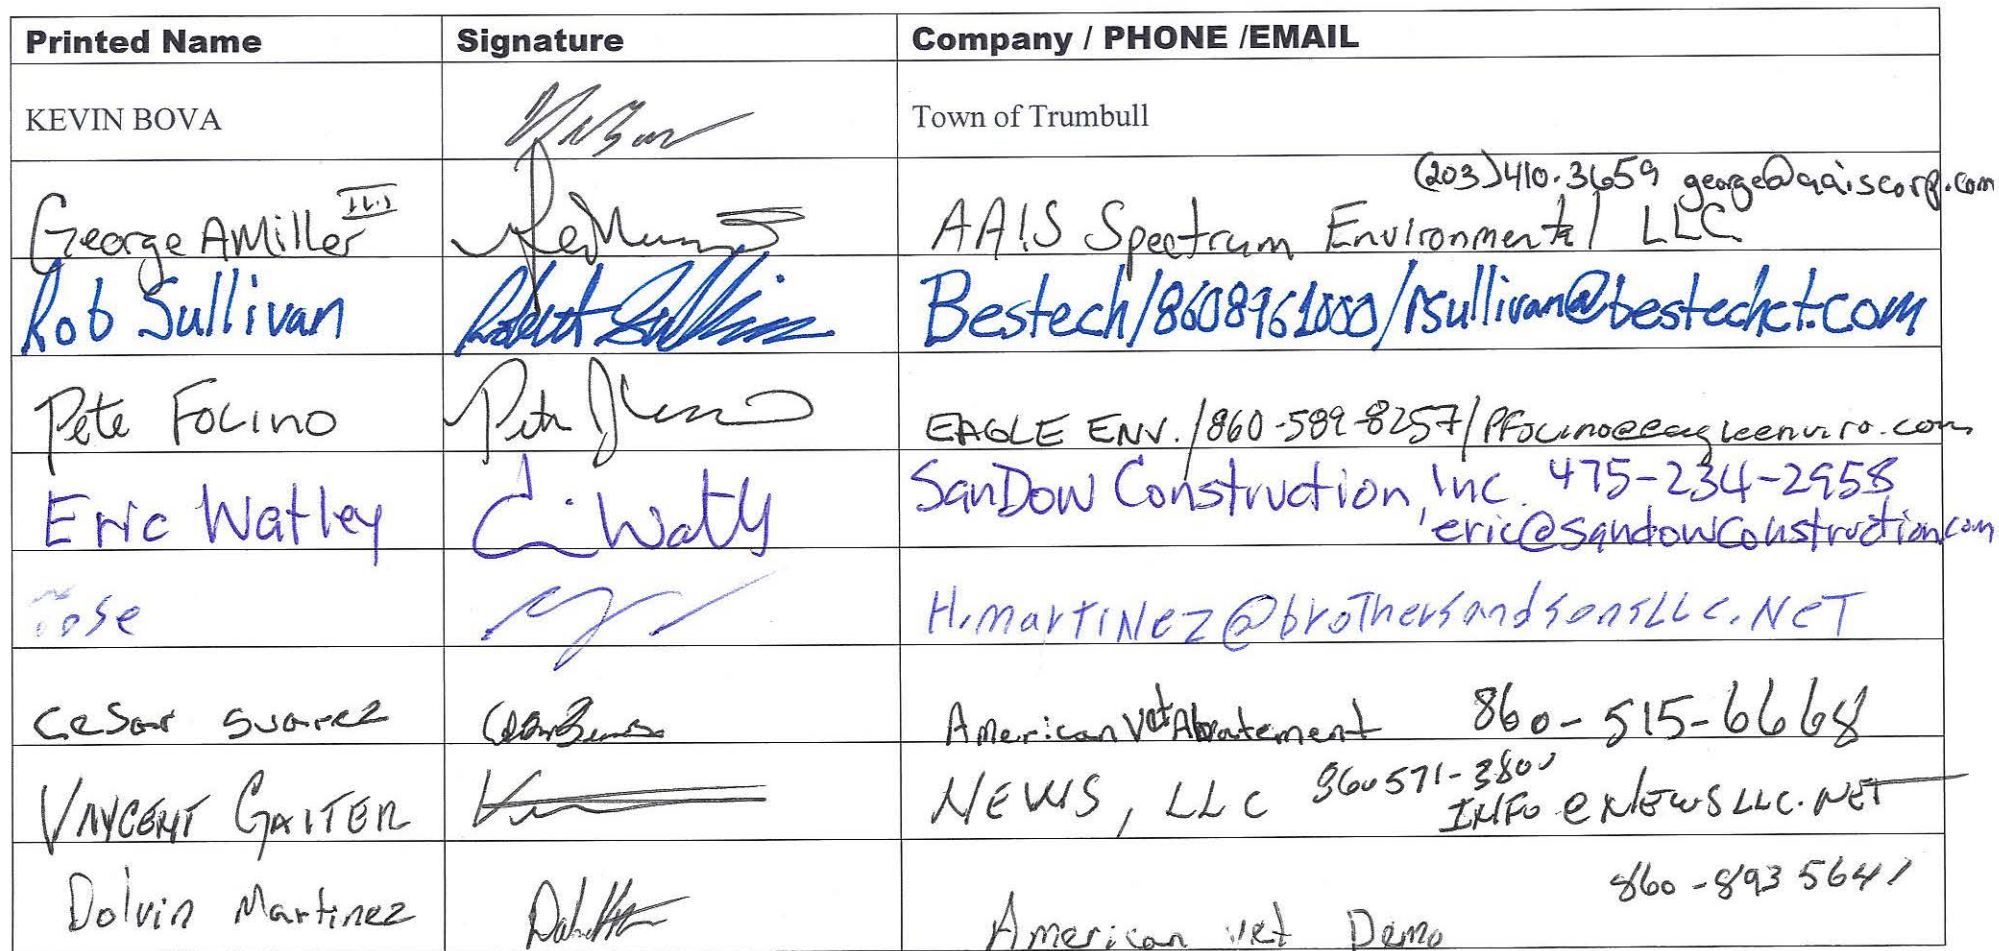 Printed Name Signature Company / PHONE /EMAIL
KEVIN BOVA Town of Trumbull
(203)410.3659 george@aaiscorp.com
George A Miller III AAIS Spectrum Environmental LLC
Rob Sullivan Robert Sullivan Bestech/8608961000/rsullivan@bestechct.com
Pete Focino EAGLE ENV. /860-589-8257/PFocino@eagleenviro.com
Eric Watley SanDow Construction, Inc. 475-234-2958
eric@sandowconstruction.com
Jose H.martiNez@brothersandsonsLLC.NeT
Cesar Suarez American Vet Abatement 860-515-6668
VNYCENT GAITER NEWS, LLC 860 571-3800
INFO@NEWSLLC.NET
860-893 5641
Dolvin Martinez American Vet Demo